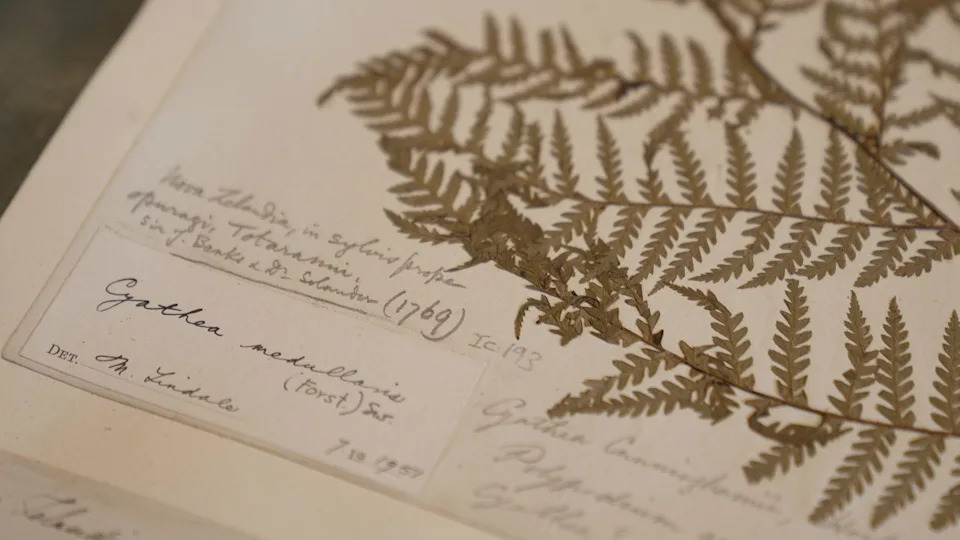 Nova Zelandia, in sylvis prope
opuragi, Totaranui,
Sir J. Banks & Dr Solander (1769)
IC.193
Cyathea medullaris
(Forst.) Sw.
DET. M. Lindale
1957
Cyathea Cunninghamii,
Cyathea